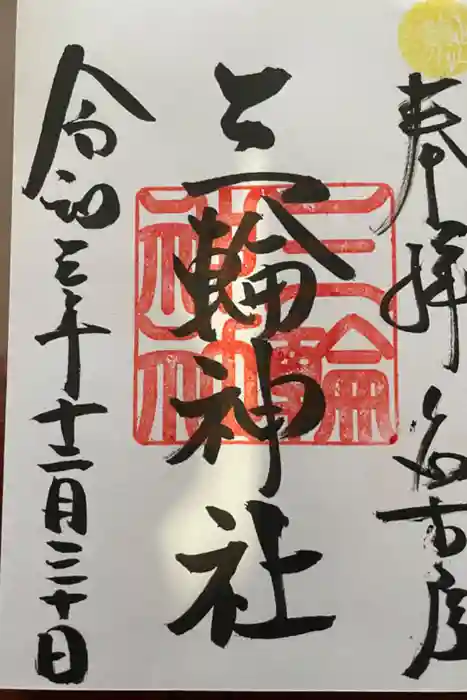 奉拝 名古屋
三輪神社
令和三年十二月三十日
三輪
神社